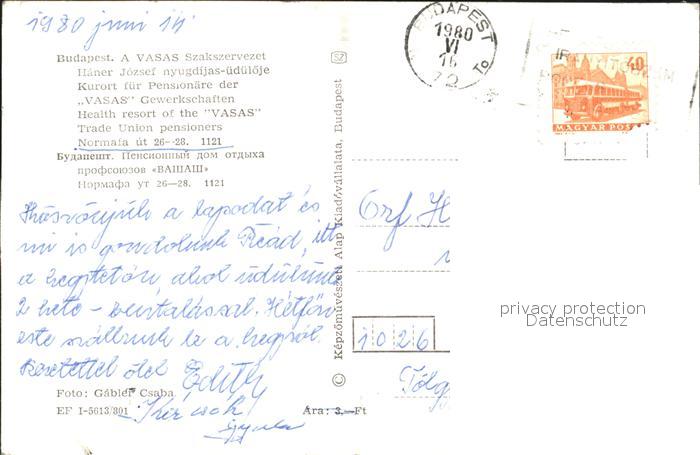 1980 juni 14
Budapest. A VASAS Szakszervezet
Háner József nyugdíjas-üdülője
Kurort für Pensionäre der
„VASAS" Gewerkschaften
Health resort of the "VASAS"
Trade Union pensioners
Normafa út 26—28. 1121
Будапешт. Пенсионный дом отдыха
профсоюзов «ВАШАШ»
Нормафа ут 26—28. 1121
Köszönjük a lapodat és
mi is gondolunk Reád, itt
a hegytetőn, ahol üdülünk
2 hete - beutalással. Hétfőn
este szállunk le a hegyről.
Szeretettel ölel Edith
Foto: Gábler Csaba
EF I-5613/801
Ára: 3.—Ft
© Képzőművészeti Alap Kiadóvállalata, Budapest
SZ
BUDAPEST
1980
VI
16
72
40
MAGYAR POS
Orf H
1026
Tölg
privacy protection
Datenschutz